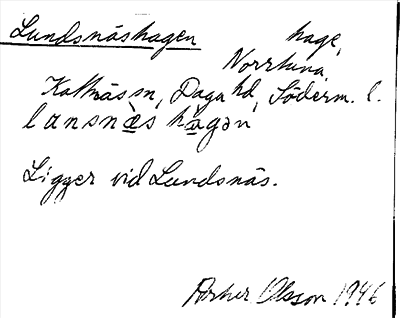 Lundsnäshagen hage,
Norrtuna,
Kattnäs sn, Daga hd, Söderm. l.
lansnès hàgən
Ligger vid Lundsnäs.
Olsson 1946